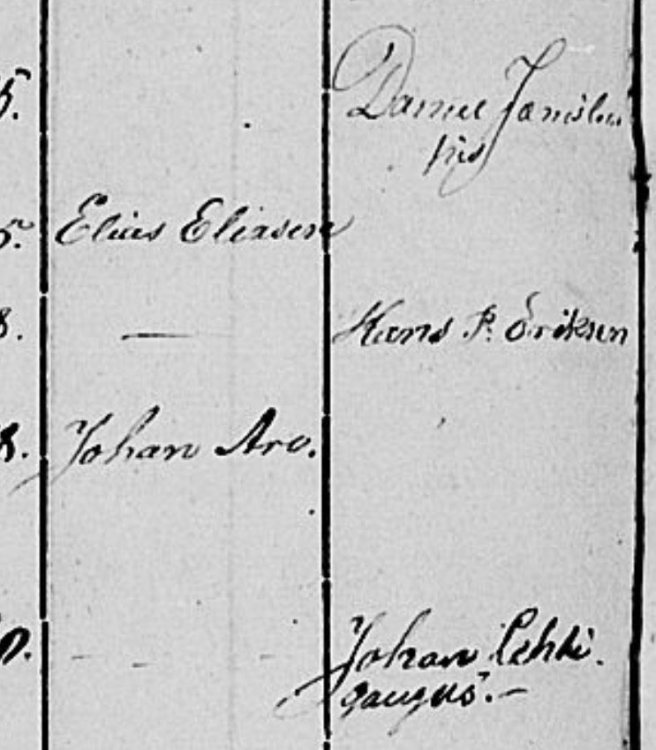 5.
Daniel
5. Elias Eliasen
8. — Hans P. Eriksen
8. Johan Aro.
0. - - - Johan Lehti
gangas. -